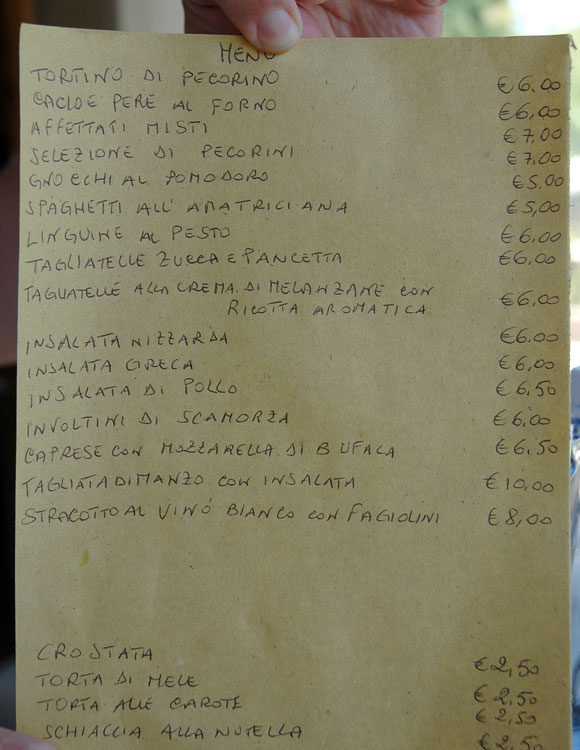 MENU
TORTINO DI PECORINO €6.00
CACIO E PERE AL FORNO €6,00
AFFETTATI MISTI €7,00
SELEZIONE DI PECORINI €7,00
GNOCCHI AL POMODORO €5,00
SPAGHETTI ALL'AMATRICIANA €5,00
LINGUINE AL PESTO €6.00
TAGLIATELLE ZUCCA E PANCETTA €6,00
TAGLIATELLE ALLA CREMA DI MELANZANE CON
RICOTTA AROMATICA €6,00
INSALATA NIZZARDA €6.00
INSALATA GRECA €6,00
INSALATA DI POLLO €6,50
INVOLTINI DI SCAMORZA €6,00
CAPRESE CON MOZZARELLA DI BUFALA €6,50
TAGLIATA DI MANZO CON INSALATA €10,00
STRACOTTO AL VINO BIANCO CON FAGIOLINI €8,00
CROSTATA €2,50
TORTA DI MELE €2,50
TORTA ALLE CAROTE €2,50
SCHIACCIA ALLA NUTELLA €2,50